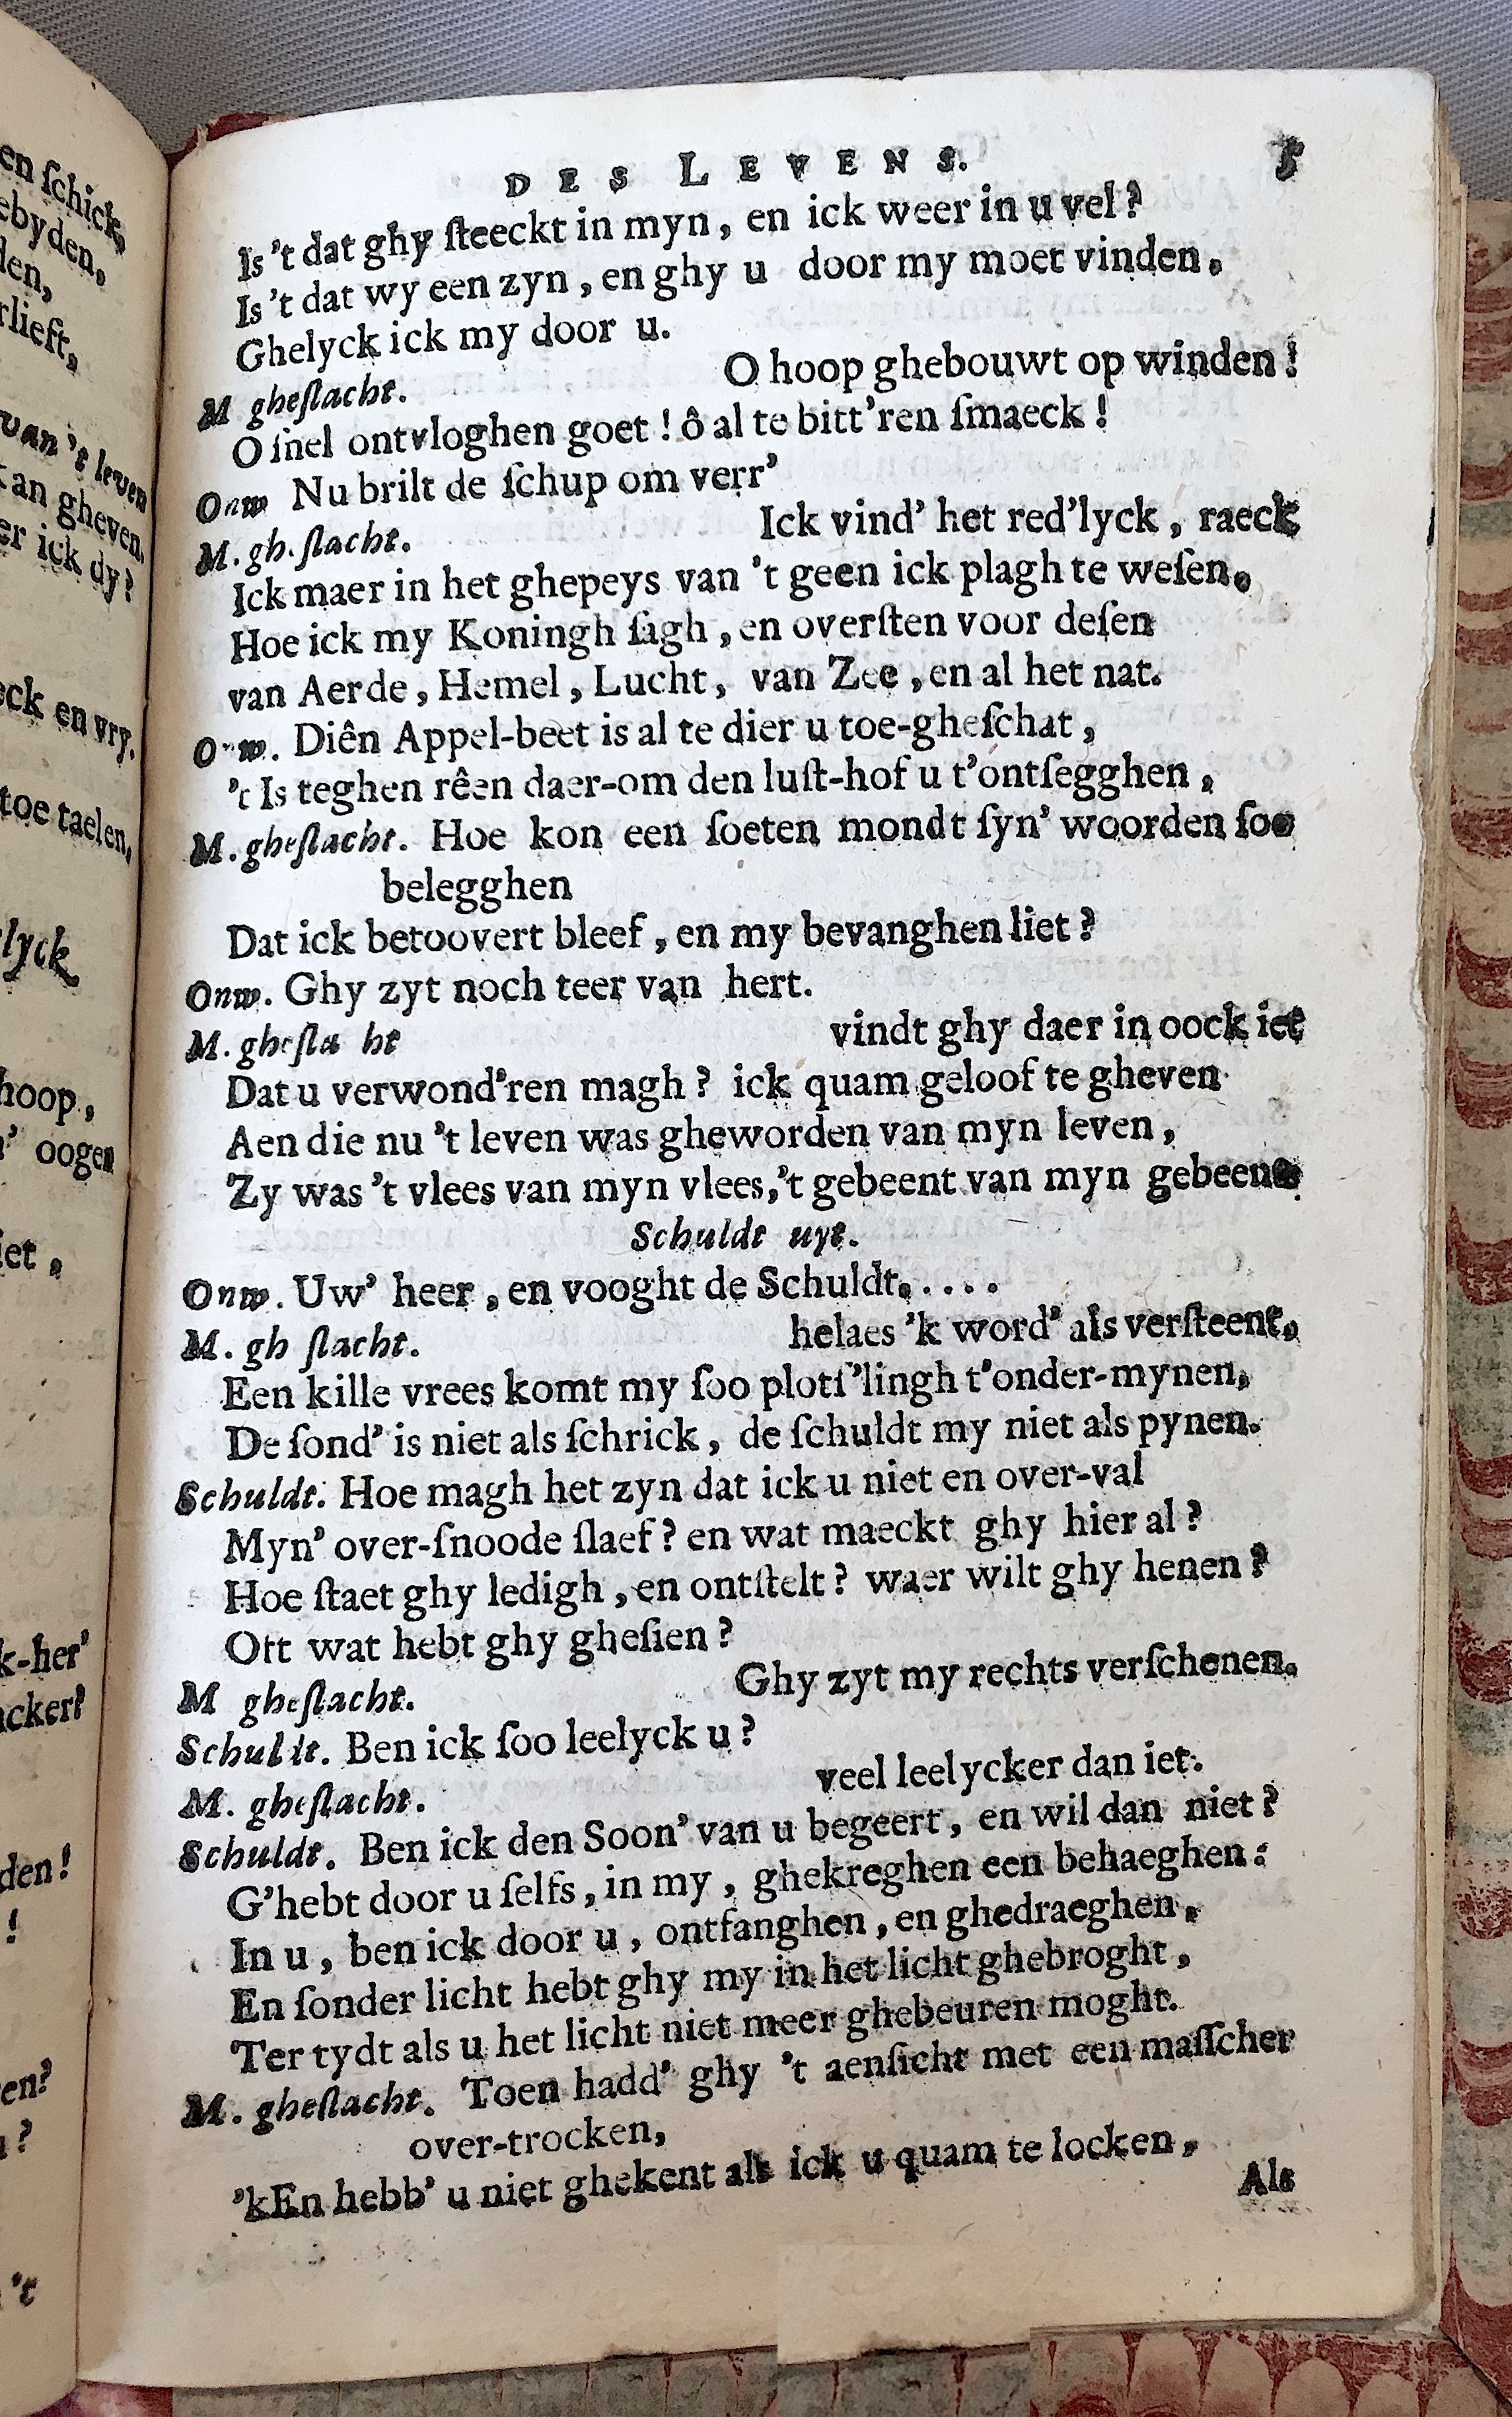 en ſchick,
ebyden,
den,
rlieft,
van 't leven
kan gheven.
er ick dy?
eck en vry.
toe taelen,
lyck
hoop,
' oogen
iet,
k-her'
acker?
den!
!
en?
?
't
DES LEVENS. 5
Is 't dat ghy ſteeckt in myn, en ick weer in u vel?
Is 't dat wy een zyn, en ghy u door my moet vinden,
Ghelyck ick my door u.
M gheſlacht. O hoop ghebouwt op winden!
O ſnel ontvloghen goet! ô al te bitt'ren ſmaeck!
Onw Nu brilt de ſchup om verr'
M. gh.ſlacht. Ick vind' het red'lyck, raeck
Ick maer in het ghepeys van 't geen ick plagh te weſen.
Hoe ick my Koningh ſagh, en overſten voor deſen
van Aerde, Hemel, Lucht, van Zee, en al het nat.
Onw. Diên Appel-beet is al te dier u toe-gheſchat,
't Is teghen rêen daer-om den luſt-hof u t'ontſegghen,
M. gheſlacht. Hoe kon een ſoeten mondt ſyn' woorden ſoo
belegghen
Dat ick betoovert bleef, en my bevanghen liet?
Onw. Ghy zyt noch teer van hert.
M. gheſla ht vindt ghy daer in oock iet
Dat u verwond'ren magh? ick quam geloof te gheven
Aen die nu 't leven was gheworden van myn leven,
Zy was 't vlees van myn vlees, 't gebeent van myn gebeent
Schuldt uyt.
Onw. Uw' heer, en vooght de Schuldt,....
M. gh ſlacht. helaes 'k word' als verſteent,
Een kille vrees komt my ſoo plotſ'lingh t'onder-mynen,
De ſond' is niet als ſchrick, de ſchuldt my niet als pynen.
Schuldt. Hoe magh het zyn dat ick u niet en over-val
Myn' over-ſnoode ſlaef? en wat maeckt ghy hier al?
Hoe ſtaet ghy ledigh, en ontſtelt? waer wilt ghy henen?
Oft wat hebt ghy gheſien?
M gheſlacht. Ghy zyt my rechts verſchenen.
Schuldt. Ben ick ſoo leelyck u?
M. gheſlacht. veel leelycker dan iet.
Schuldt. Ben ick den Soon' van u begeert, en wil dan niet?
G'hebt door u ſelfs, in my, ghekreghen een behaeghen:
In u, ben ick door u, ontfanghen, en ghedraeghen,
En ſonder licht hebt ghy my in het licht ghebroght,
Ter tydt als u het licht niet meer ghebeuren moght.
M. gheſlacht. Toen hadd' ghy 't aenſicht met een maſſcher
over-trocken,
'kEn hebb' u niet ghekent als ick u quam te locken,
Als